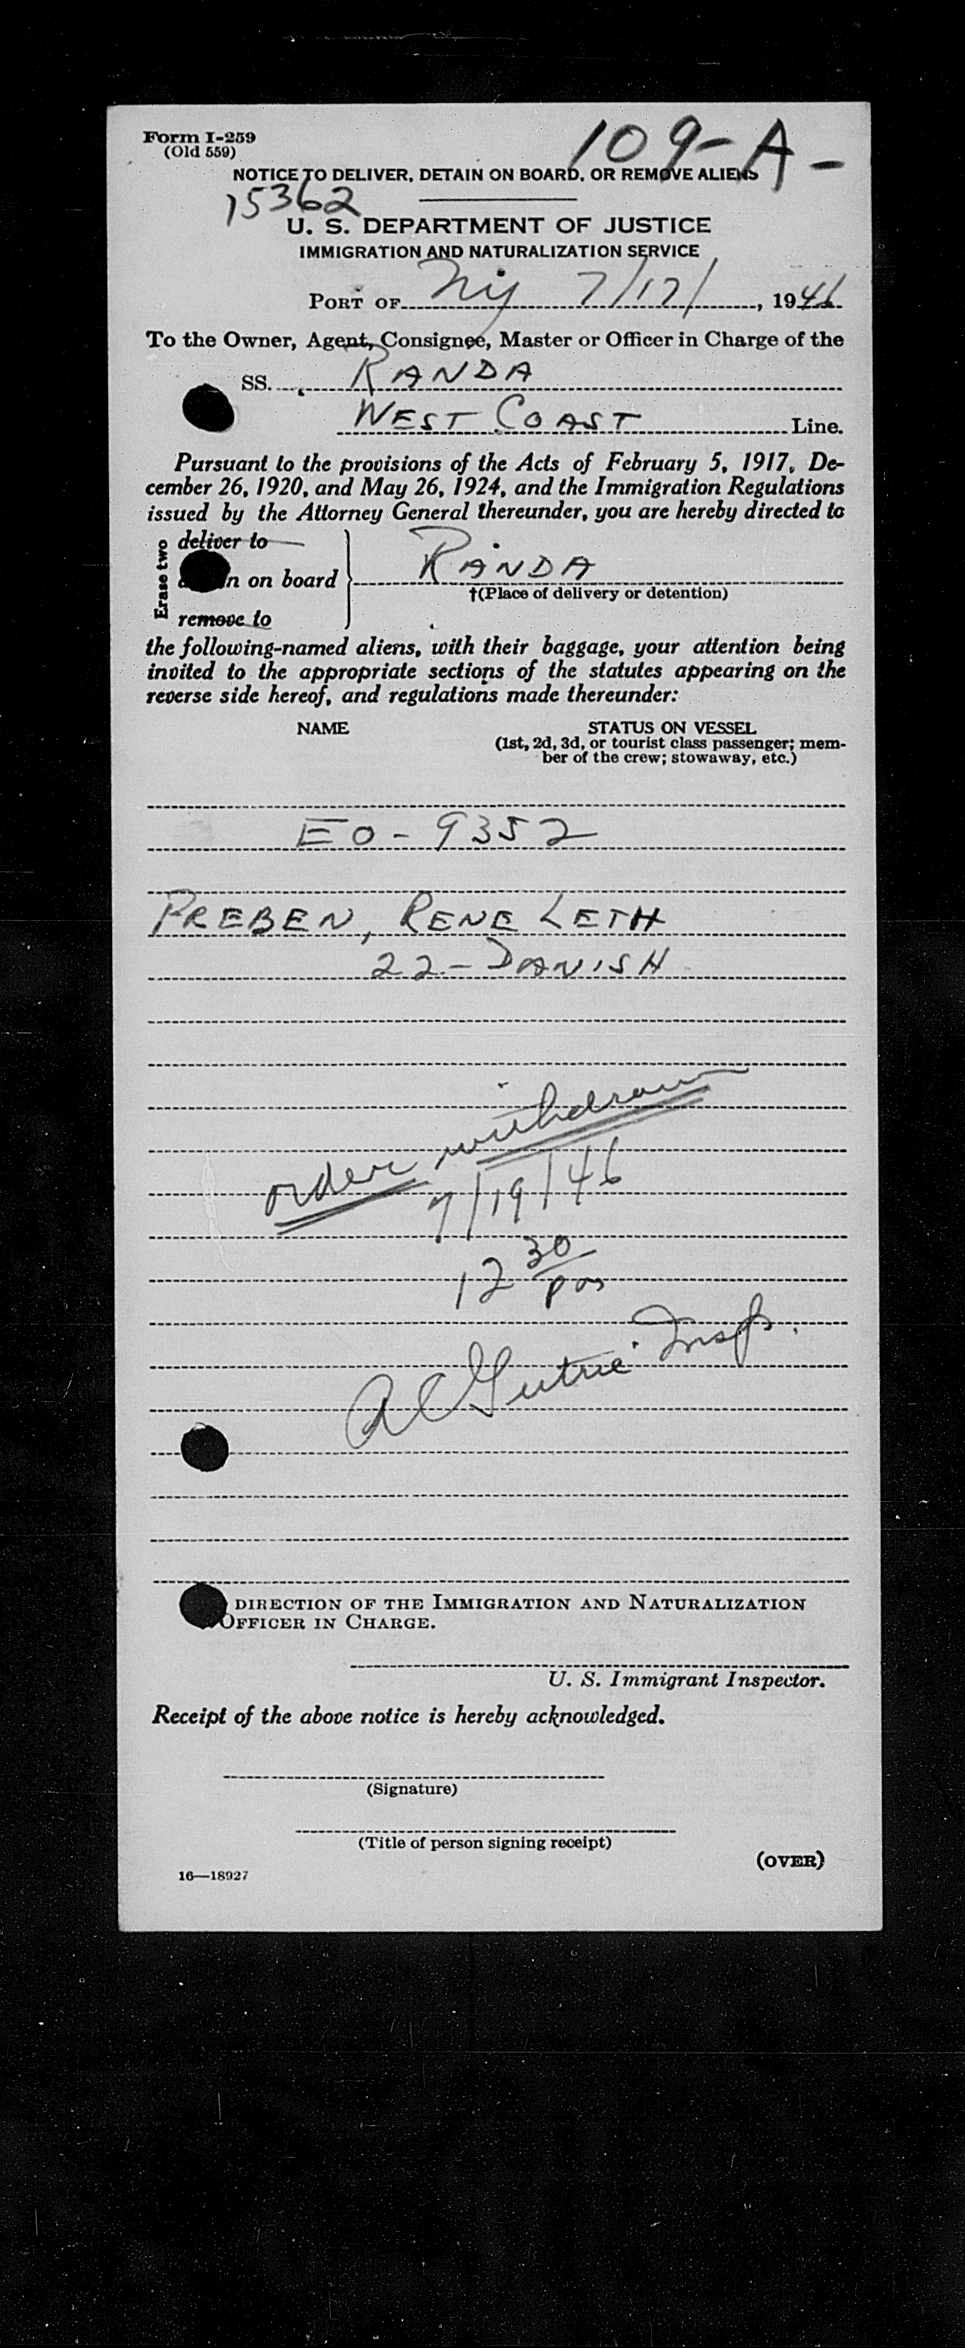 Form I-259
(Old 559)
109-A-
NOTICE TO DELIVER, DETAIN ON BOARD, OR REMOVE ALIENS
15362
U. S. DEPARTMENT OF JUSTICE
IMMIGRATION AND NATURALIZATION SERVICE
PORT OF NY 7/17/, 1946
To the Owner, Agent, Consignee, Master or Officer in Charge of the
SS. RANDA
WEST COAST Line.
Pursuant to the provisions of the Acts of February 5, 1917, De-
cember 26, 1920, and May 26, 1924, and the Immigration Regulations
issued by the Attorney General thereunder, you are hereby directed to
Erase two
deliver to
n on board
remove to
RANDA
†(Place of delivery or detention)
the following-named aliens, with their baggage, your attention being
invited to the appropriate sections of the statutes appearing on the
reverse side hereof, and regulations made thereunder:
NAME STATUS ON VESSEL
(1st, 2d, 3d, or tourist class passenger; mem-
ber of the crew; stowaway, etc.)
EO-9352
PREBEN, RENE LETH
22-DANISH
order withdrawn
7/19/46
12 30 pm
A C Gutrie Insp.
DIRECTION OF THE IMMIGRATION AND NATURALIZATION
OFFICER IN CHARGE.
U. S. Immigrant Inspector.
Receipt of the above notice is hereby acknowledged.
(Signature)
(Title of person signing receipt)
(OVER)
16—18927